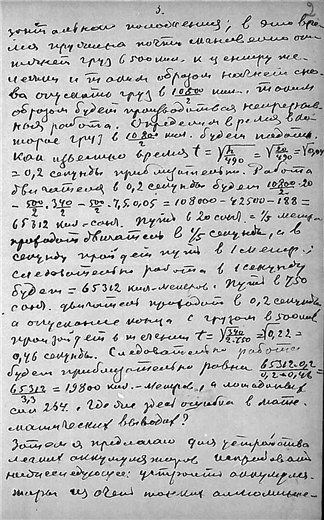 3.
зонтальное положение; в это вре-
мя пружина почти мгновенно от-
груз 6500 кил. к центру же-
и таким образом начнет сно-
ва опускать груз в 10800/2 кил. таким
образом будет производиться непрерыв-
ная работа. Определим время в ко-
торое груз в 10800/2 кил. будет падать.
Как известно время t = √h/490 = √20/490 = √0,04
= 0,2 секунды приблизительно. Работа
двигателя в 0,2 секунды будет 10800/2·20
- 500/2·340/2 - 500/2·
65312 кил-сант. Путь в 20 сант. = 1/5 метра
двигатель в 1/5 секунды, а в
секунду пройдет путь в 1 метр;
следовательно работа в 1 секунду
будет = 65312 кил-метров. Путь в
сант. двигатель проходит в 0,2 секунды
а опускание конца с грузом в 500 кил.
произойдет в течении t = √340/2·450 = √0,22 =
0,46 секунды. Следовательно работа
будет приблизительно равна 65312·0,2
65312/3,3 = 19800 кил.-метров, а лошадиных
сил 234. Где бы здесь ошибка в мате-
матических выводах?
Затем я предлагаю для устройства
легких аккумуляторов испробовать
нижеследующее: устроить аккумуля-
торы из очень тонких алюминие-